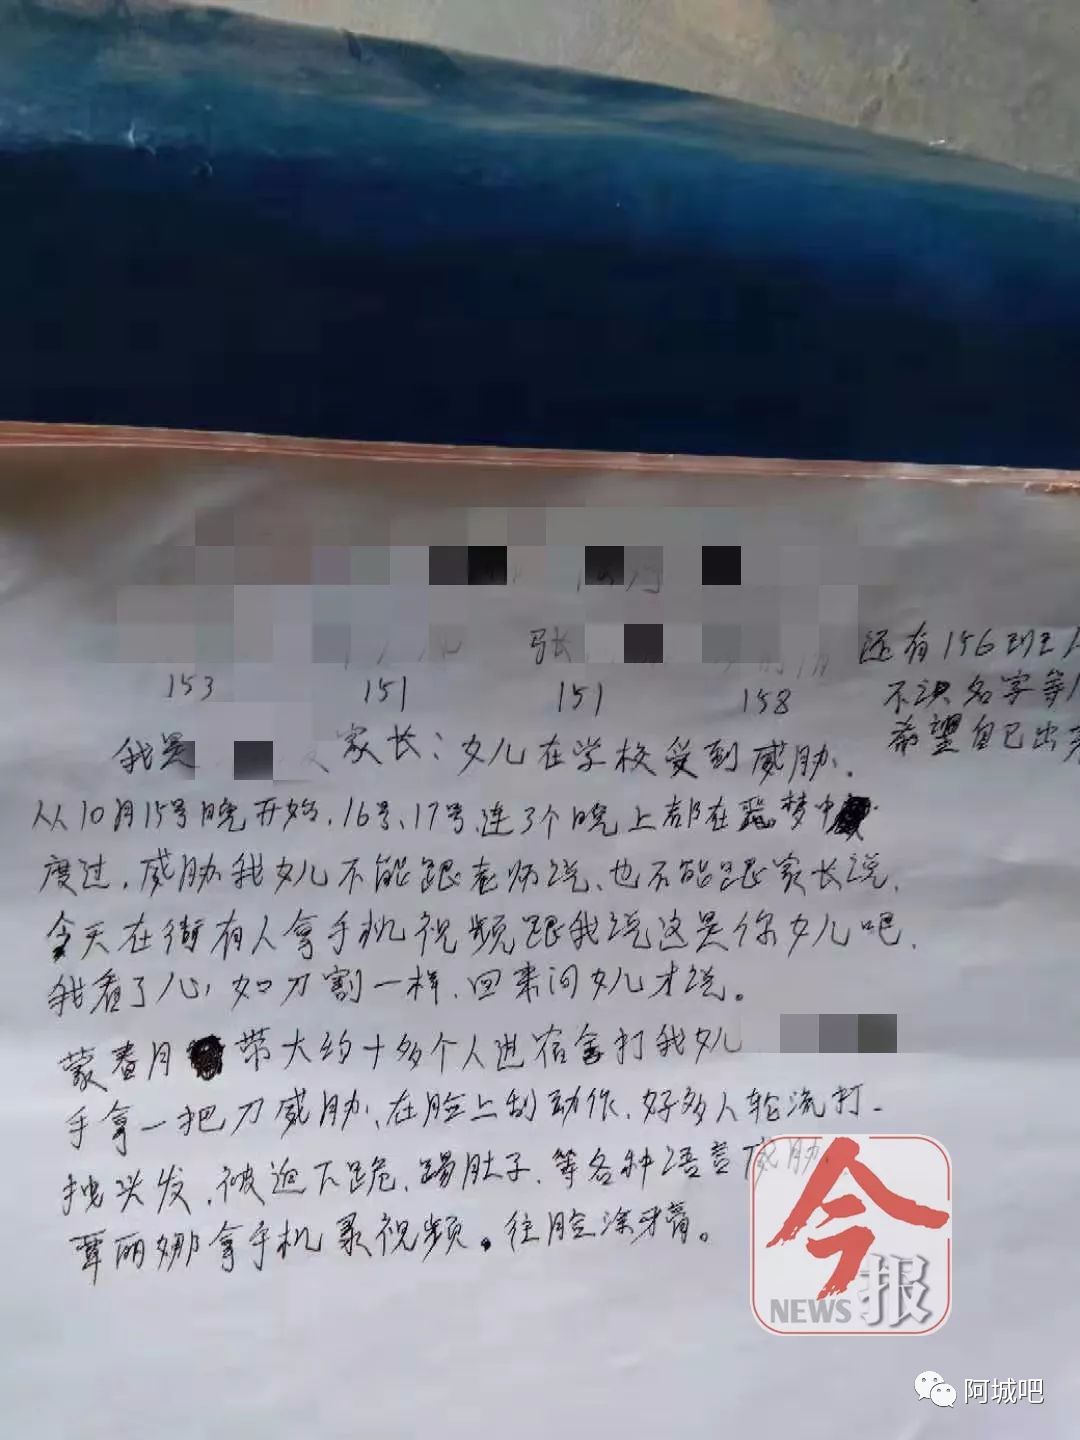 张
还有156班
153 151 151 158
不识名字等
希望自己出
我是 家长：女儿在学校受到威胁.
从10月15号晚开始,16号、17号,连3个晚上都在恶梦中
度过,威胁我女儿不能跟老师说、也不能跟家长说,
今天在街有人拿手机视频跟我说这是你女儿吧,
我看了心,如刀割一样,回来问女儿才说。
蒙春月 带大约十多个人进宿舍打我女儿
手拿一把刀威胁、在脸上刮动作,好多人轮流打-
拽头发,被迫下跪,踢肚子,等各种语言威胁
覃丽娜拿手机录视频。往脸涂牙膏。
今报
NEWS
阿城吧